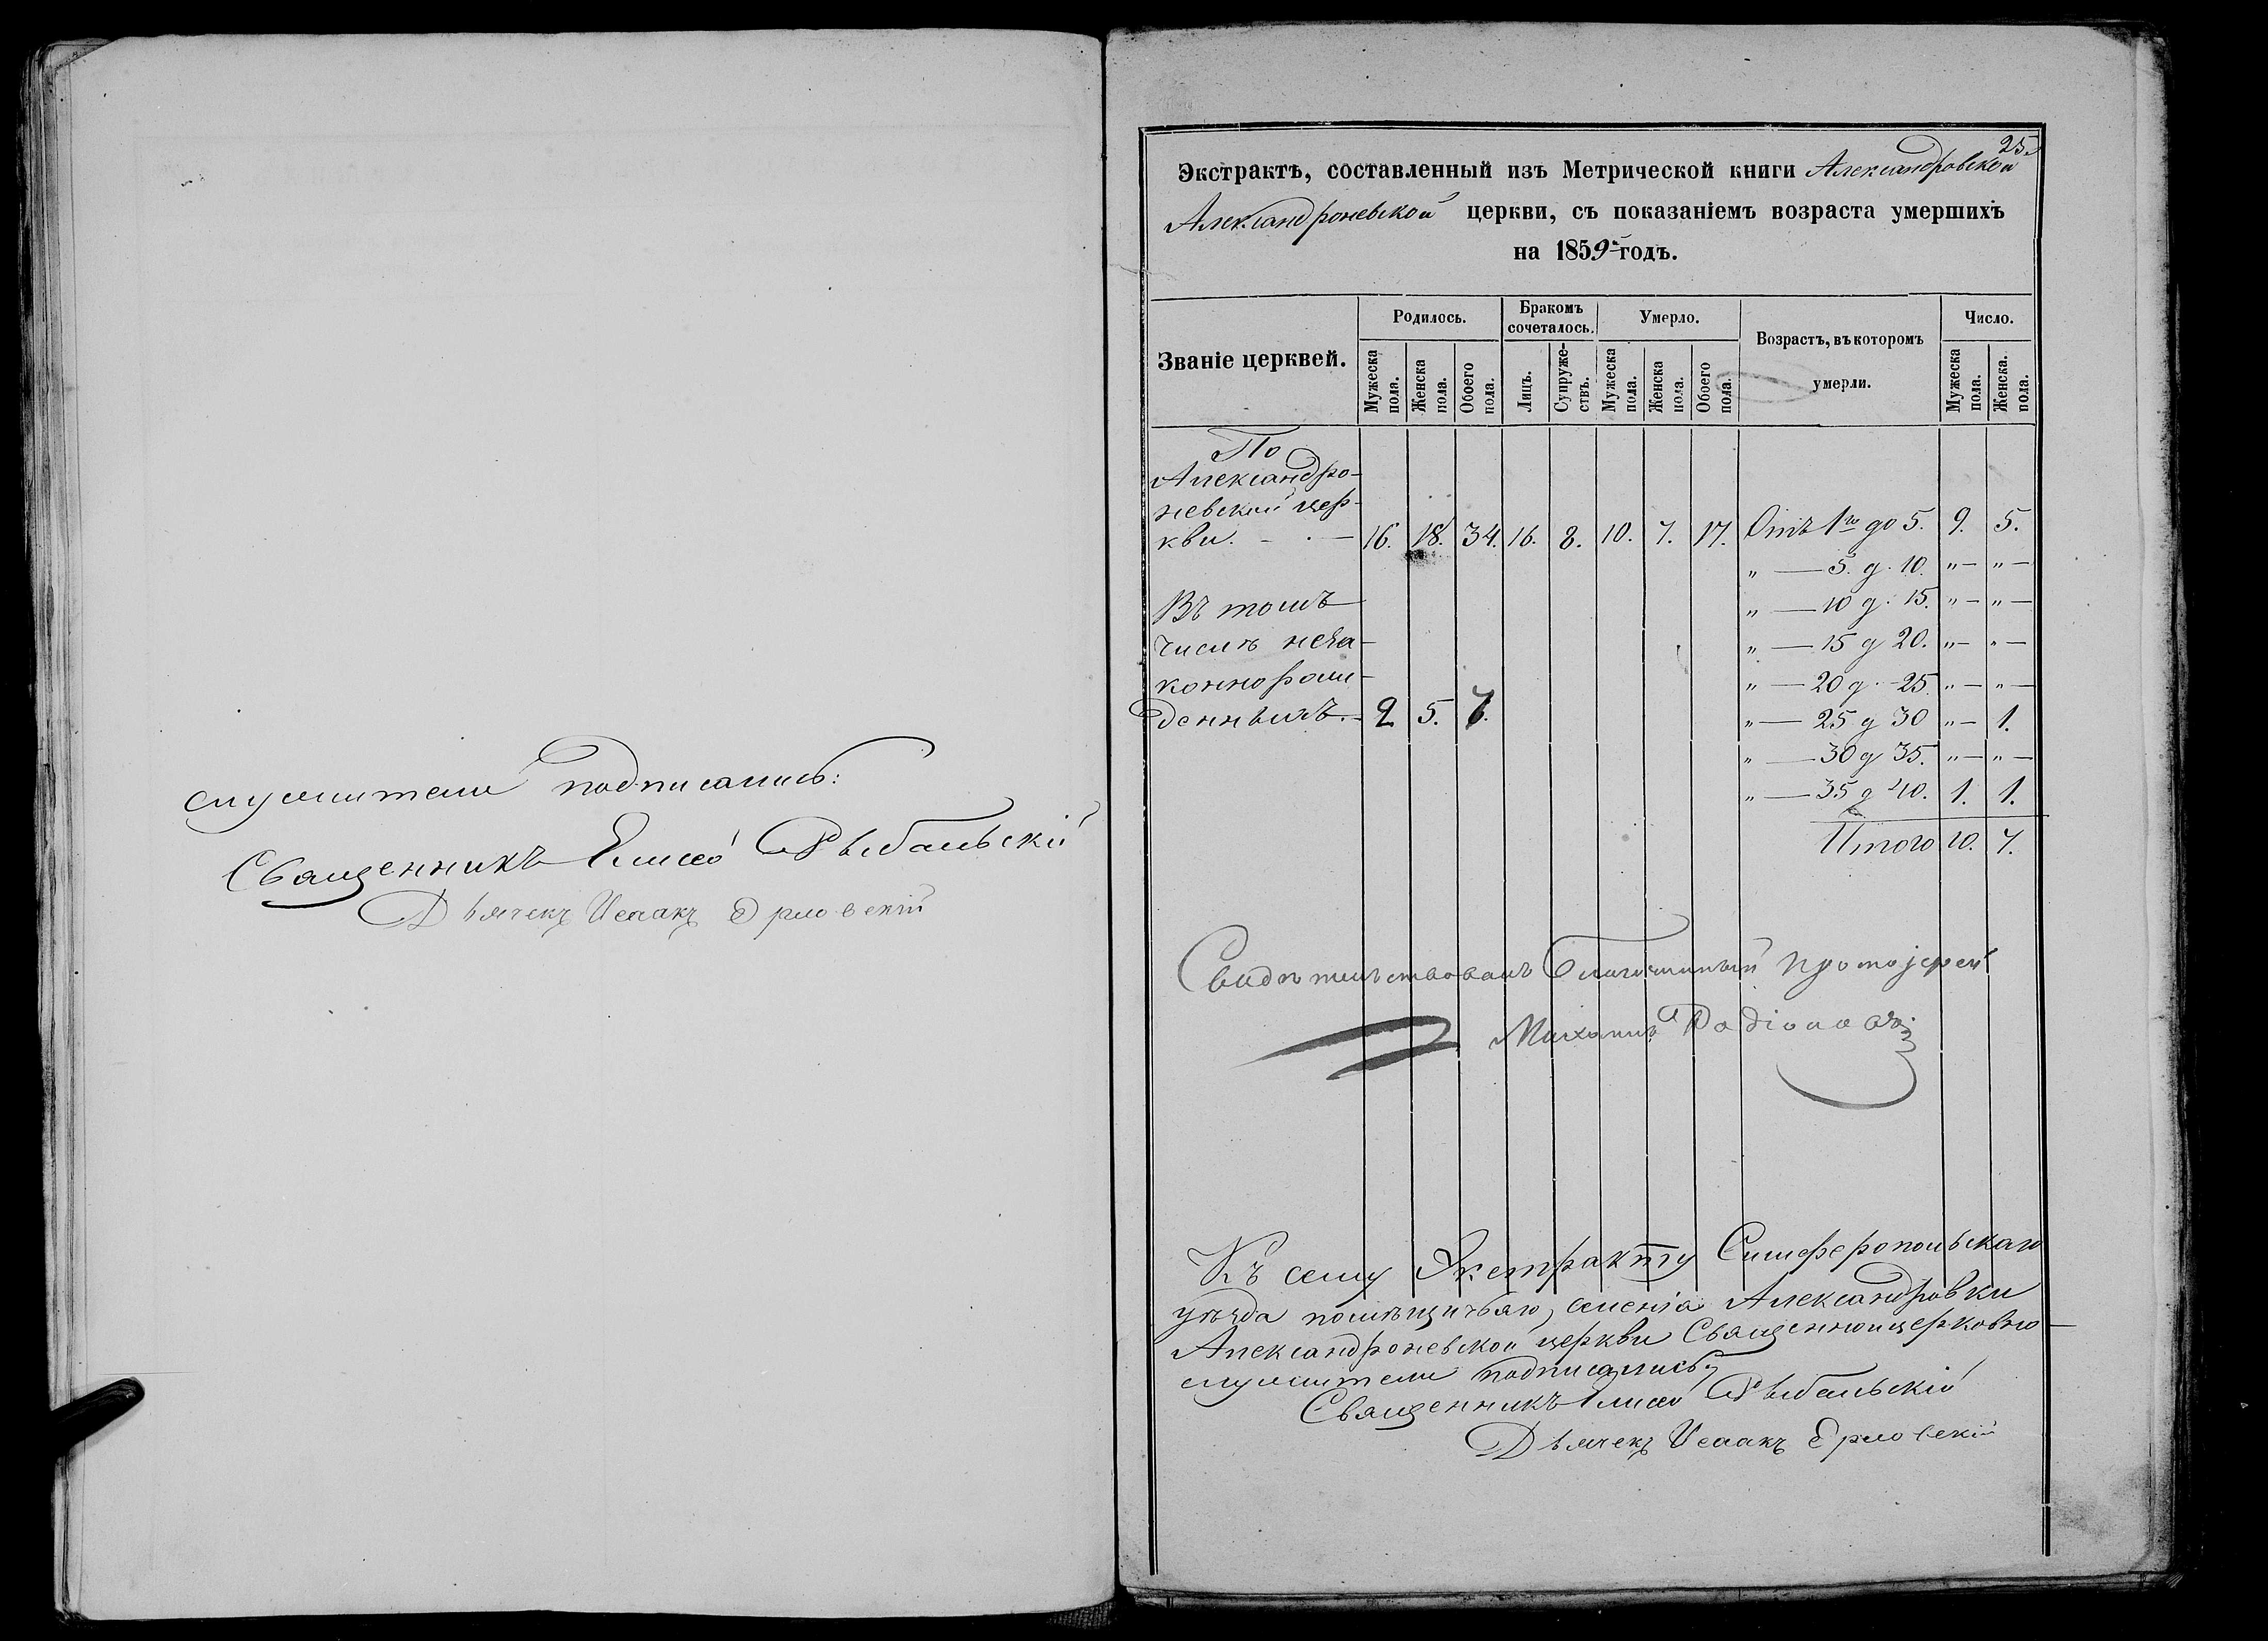 служители подписались:
Священникъ Елисей Рыбальскій
Дьячекъ Исаакъ Орловскій
25.
Экстрактъ, составленный изъ Метрической книги Александровской
Александроневской церкви, съ показаніемъ возраста умершихъ
на 1859й годъ.
Званіе церквей.
Родилось.
Бракомъ сочеталось.
Умерло.
Возрастъ, въ которомъ умерли.
Число.
Мужеска пола.
Женска пола.
Обоего пола.
Лицъ.
Супружествъ.
Мужеска пола.
Женска пола.
Обоего пола.
Мужеска пола.
Женска. пола.
По
Александро-
невской цер-
кви. - . — 16. 18. 34. 16. 8. 10. 7. 17. Отъ 1го до 5. 9. 5.
„ — 5. д. 10. „ — „ —
Въ томъ „ — 10 д. 15. „ — „ —
числѣ неза- „ — 15 д 20. „ — „ —
коннорож- „ — 20 д. 25. „ — „ —
денныхъ. - 2 5. 7. „ — 25 д 30 „ — 1.
„ — 30 д 35. „ — „ —
„ — 35 д 40. 1. 1.
Итого 10. 7.
Свидѣтельствовалъ Благочинный Протоіерей
Михаилъ Родіоновъ
Къ сему Экстракту Симферопольскаго
уѣзда помѣщичьяго, селенія Александровки
Александроневской церкви Священноицерковно—
служители подписались,
Священникъ Елисей Рыбальскій
Дьячекъ Исаакъ Орловскій